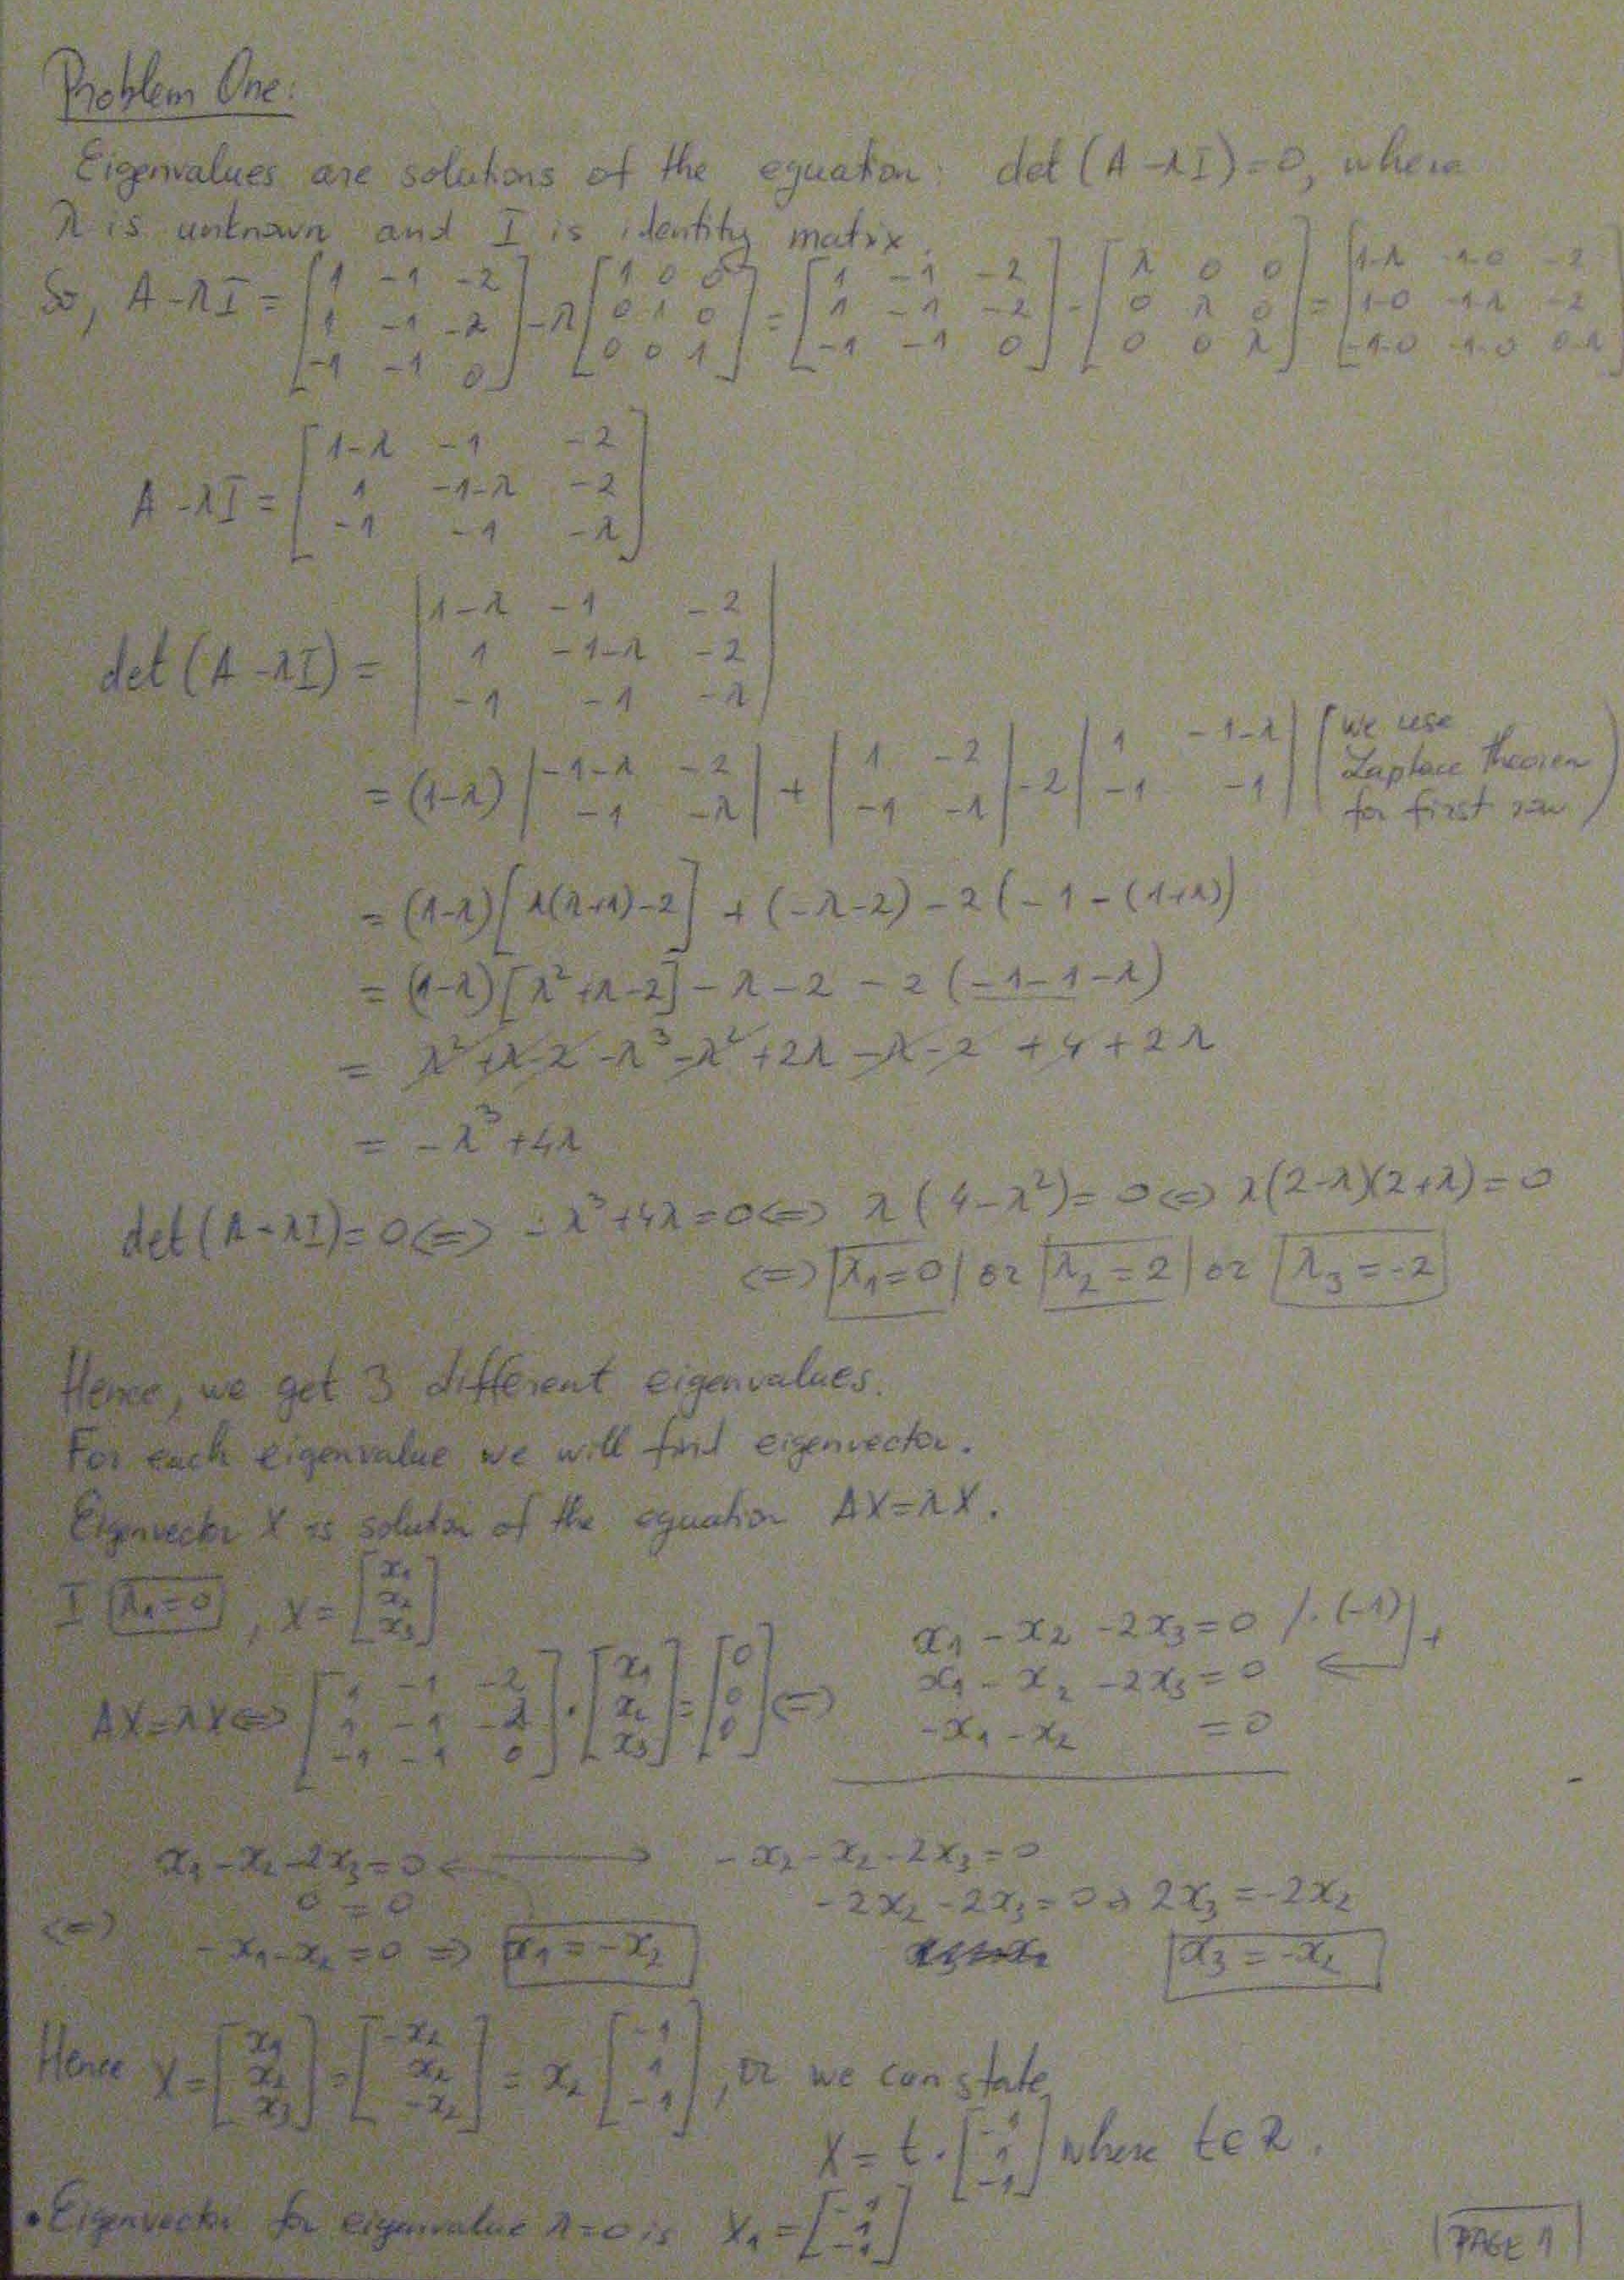 Problem One:
Eigenvalues are solutions of the equation: det (A - λI) = 0, where
λ is unknown and I is identity matrix.
So, A - λI = [1 -1 -2; 1 -1 -2; -1 -1 0] - λ[1 0 0; 0 1 0; 0 0 1] = [1 -1 -2; 1 -1 -2; -1 -1 0] - [λ 0 0; 0 λ 0; 0 0 λ] = [1-λ -1-0 -2; 1-0 -1-λ -2; -1-0 -1-0 0-λ]
A - λI = [1-λ -1 -2; 1 -1-λ -2; -1 -1 -λ]
det (A - λI) = |1-λ -1 -2; 1 -1-λ -2; -1 -1 -λ|
= (1-λ) |-1-λ -2; -1 -λ| + |1 -2; -1 -λ| - 2 |1 -1-λ; -1 -1| (we use Laplace theorem for first row)
= (1-λ)[λ(λ+1)-2] + (-λ-2) - 2(-1-(1+λ))
= (1-λ)[λ²+λ-2] - λ - 2 - 2(-1-1-λ)
= λ²+λ-2-λ³-λ²+2λ-λ-2+4+2λ
= -λ³+4λ
det (A - λI) = 0 <=> -λ³+4λ=0 <=> λ(4-λ²)=0 <=> λ(2-λ)(2+λ)=0
<=> λ₁=0 or λ₂=2 or λ₃=-2
Hence, we get 3 different eigenvalues.
For each eigenvalue we will find eigenvector.
Eigenvector X is solution of the equation AX=λX.
I λ₁=0, X = [x₁; x₂; x₃]
AX=λX <=> [1 -1 -2; 1 -1 -2; -1 -1 0] · [x₁; x₂; x₃] = [0; 0; 0] <=>
x₁ - x₂ - 2x₃ = 0 /·(-1) +
x₁ - x₂ - 2x₃ = 0
-x₁ - x₂ = 0
x₁ - x₂ - 2x₃ = 0 → -x₂ - x₂ - 2x₃ = 0
0 = 0 -2x₂ - 2x₃ = 0 => 2x₃ = -2x₂
<=> -x₁ - x₂ = 0 => x₁ = -x₂ x₃ = -x₂
Hence X = [x₁; x₂; x₃] = [-x₂; x₂; -x₂] = x₂ [-1; 1; -1], or we can state
X = t · [-1; 1; -1] where t∈R.
• Eigenvector for eigenvalue λ=0 is X₁ = [-1; 1; -1]
PAGE 1